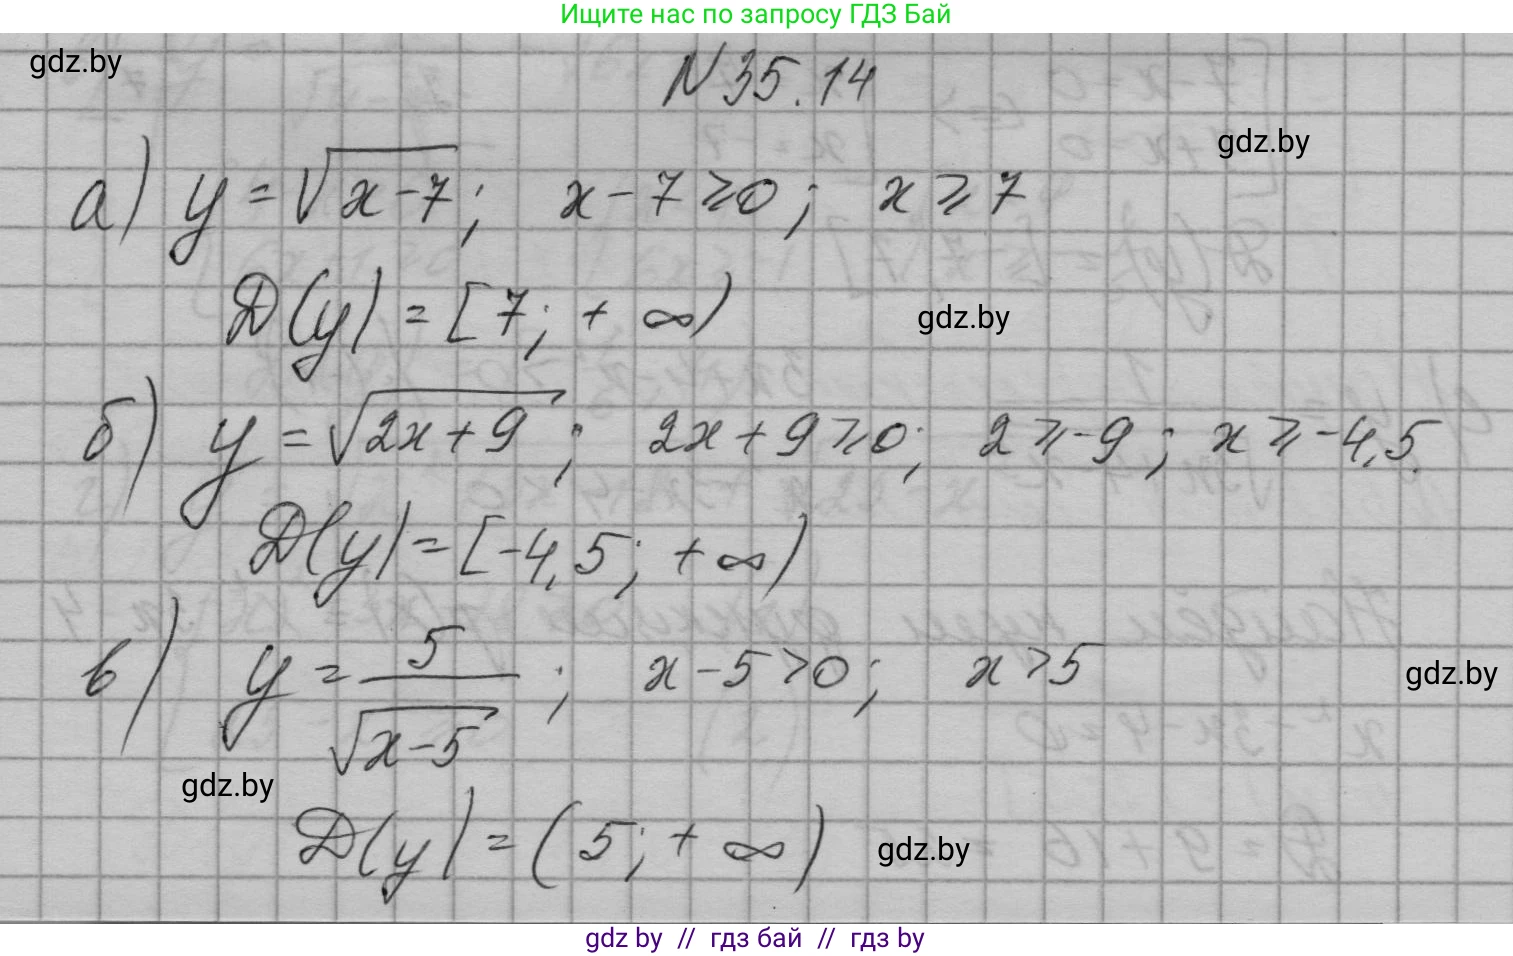 Ищите нас по запросу ГДЗ Бай
gdz.by
N 35.14
gdz.by
а) y = √(x-7); x - 7 ⩾ 0; x ⩾ 7
D(y) = [7; + ∞)
gdz.by
б) y = √(2x+9); 2x + 9 ⩾ 0; 2 ⩾ -9; x ⩾ -4,5.
D(y) = [-4,5; +∞)
в) y = 5/√(x-5); x - 5 > 0; x > 5
gdz.by
gdz.by
D(y) = (5; + ∞)
gdz.by
gdz by // гдз бай // гдз by